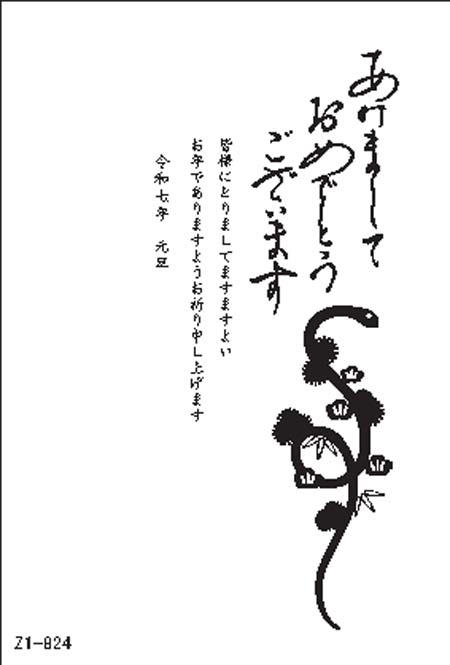 あけまして
おめでとう
ございます
皆様にとりましてますますよい
お年でありますようお祈り申し上げます
令和七年 元旦
Z1-824